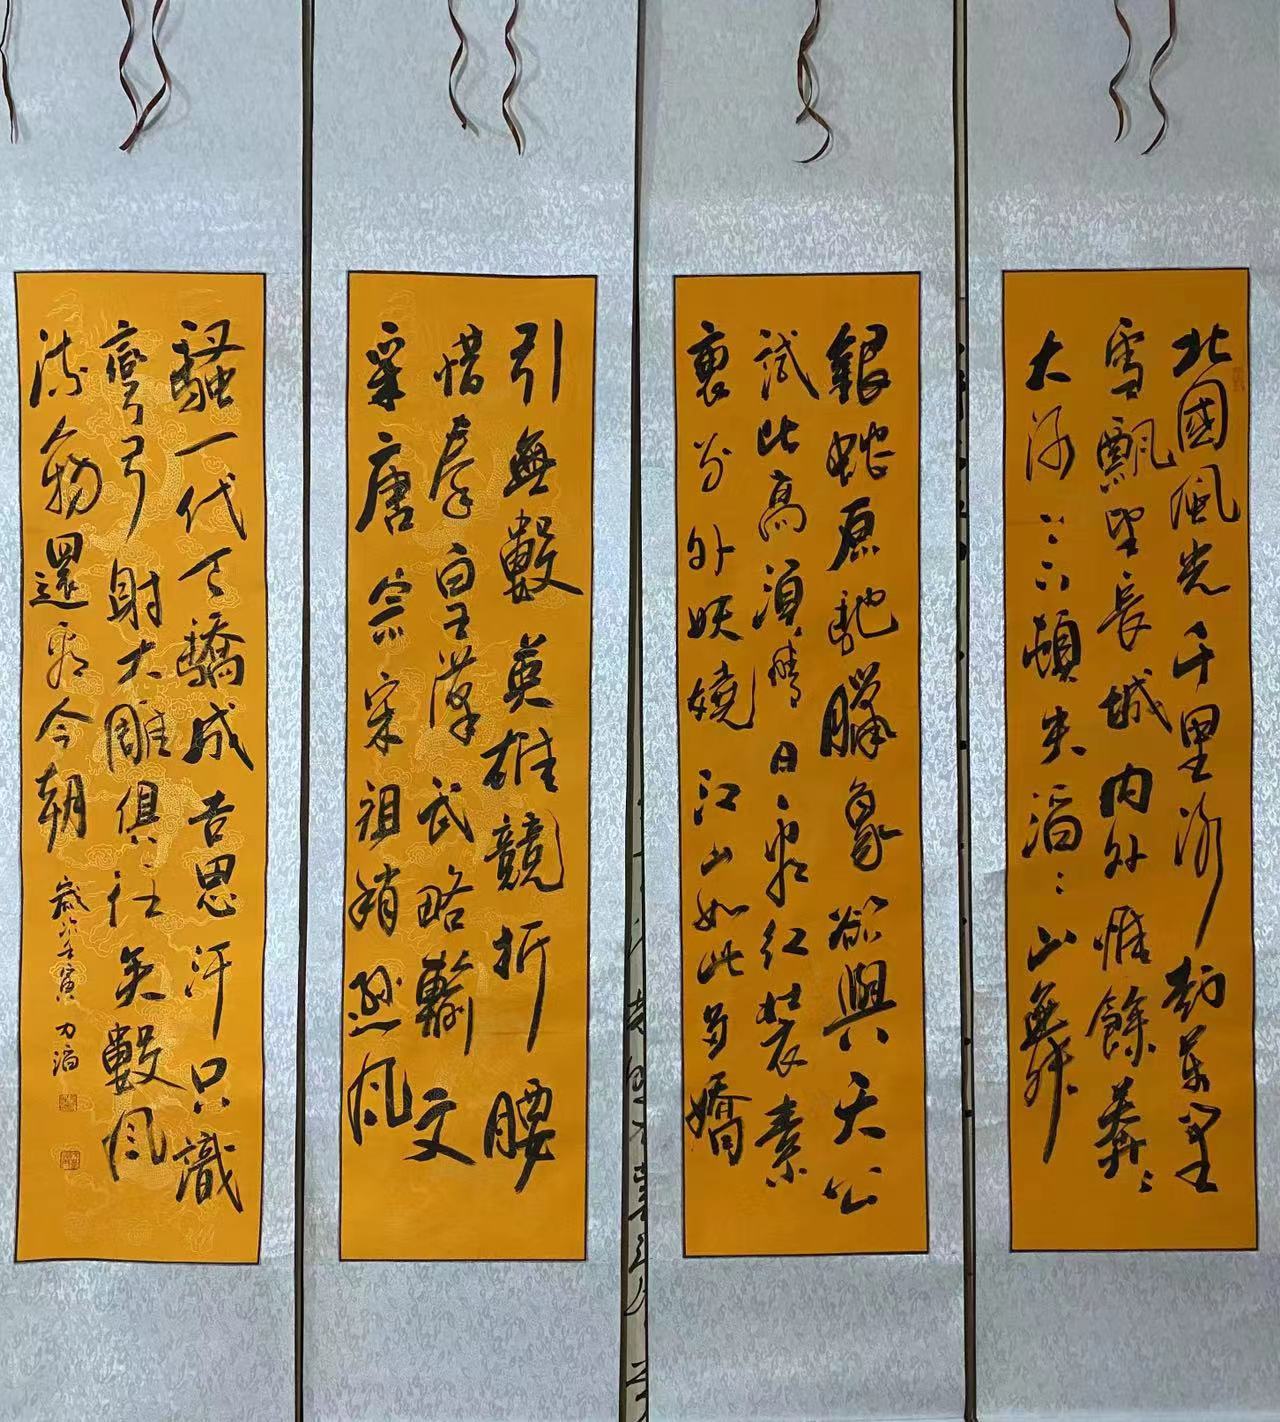 北國風光千里冰封萬里
雪飄望長城內外惟餘莽〻
大河〻〻下頓失滔〻山舞
銀蛇原馳臘象欲與天公
試比高須晴日看紅裝素
裹分外妖嬈江山如此多嬌
引無數英雄競折腰
惜秦皇漢武略輸文
采唐宗宋祖稍遜風
騷一代天驕成吉思汗只識
彎弓射大雕俱〻往矣數風
流人物還看今朝
歲次壬寅 力滔